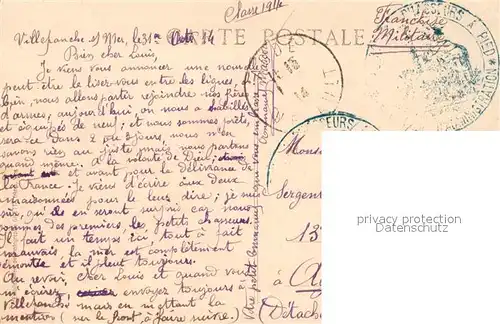 Class 1914
Villefranche s/ Mer, le 31 Oct. 14
CARTE POSTALE
Franchise
Militaire
CHASSEURS À PIED
Bien cher Louis,
Je viens vous annoncer une nouvelle
peut être la lisez vous entre les lignes,
bien, nous allons partir rejoindre nos frères
d'armes, aujourd'hui on nous a habillés
et équipés de neuf; et nous sommes prêts,
sera-ce dans 2 ou 8 jours, nous n'en
savons rien au juste mais nous partons
quand même. A la volonté de Dieu,
et avant et pour la délivrance de
la France. Je viens d'écrire aux deux
maisonnées pour le leur dire; je suis
sûr, qu'ils en seront surpris car nous
sommes des premiers, les petits chasseurs.
Il fait un temps ici, tout à fait
mauvais la mer est complètement
démontée et il pleut toujours.
Au revoir, cher Louis et quand vous
m'écrirez, envoyez toujours à
Villefranche mais en mettant la
mention (sur le front, à faire suivre.)
Monsieur
Sergent
13
à
(Détache
privacy protection
Datenschutz